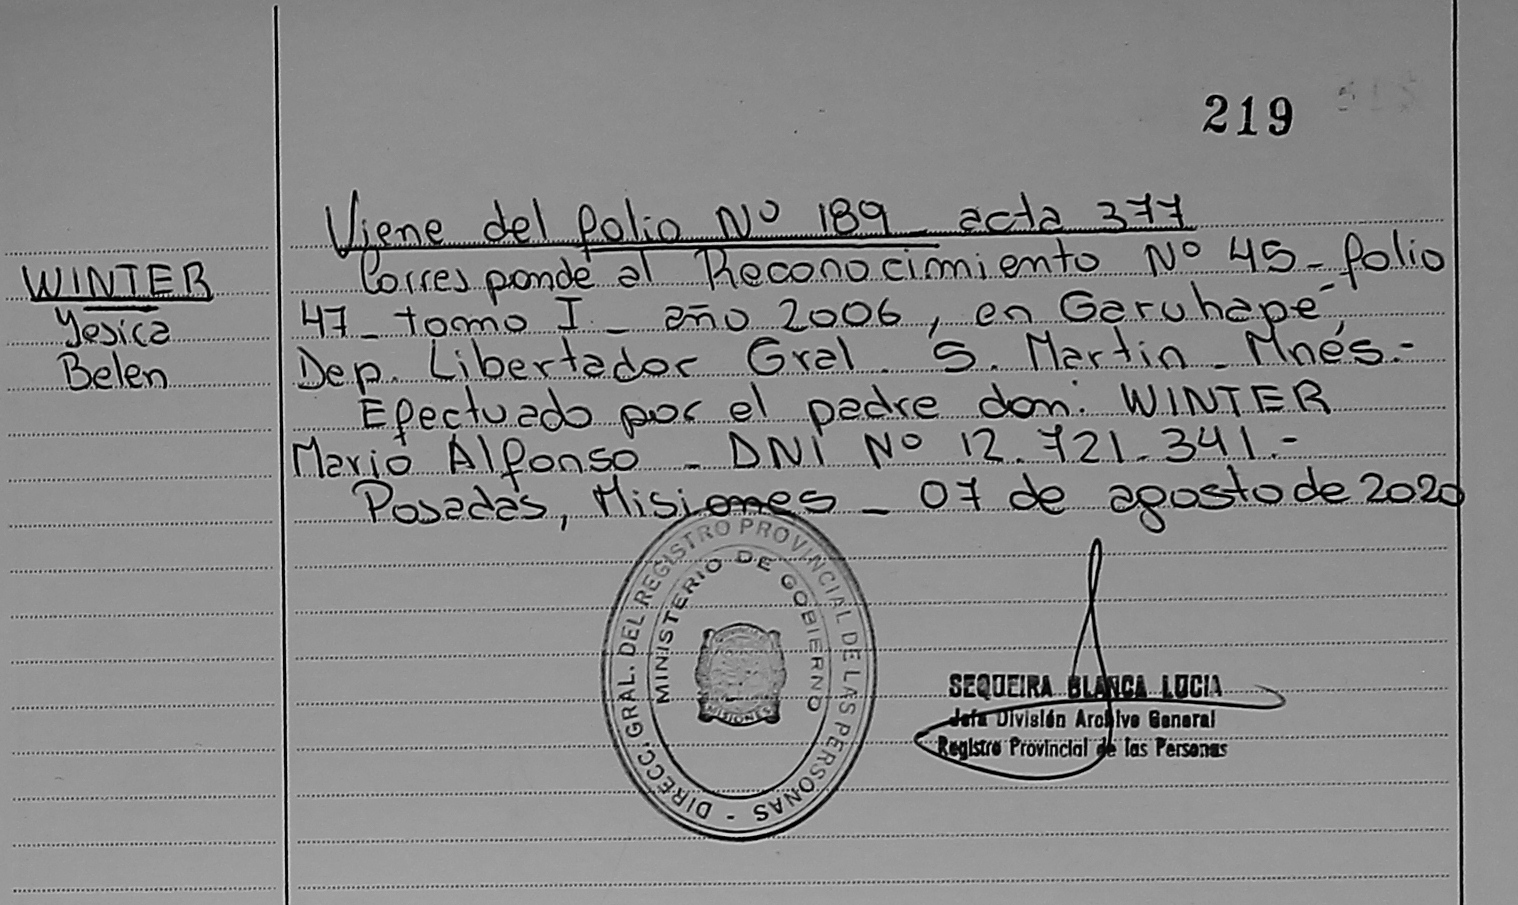 219
Viene del folio Nº 189 - acta 377
WINTER
Yesica
Belen
Corresponde al Reconocimiento Nº 45 - folio
47 - tomo I - año 2006, en Garuhapé,
Dep. Libertador Gral. S. Martin - Mnés.-
Efectuado por el padre don: WINTER
Mario Alfonso - DNI Nº 12.721.341.-
Posadas, Misiones - 07 de agosto de 2020
DIRECC. GRAL. DEL REGISTRO PROVINCIAL DE LAS PERSONAS -
MINISTERIO DE GOBIERNO
MISIONES
SEQUEIRA BLANCA LUCIA
Jefa División Archivo General
Registro Provincial de las Personas